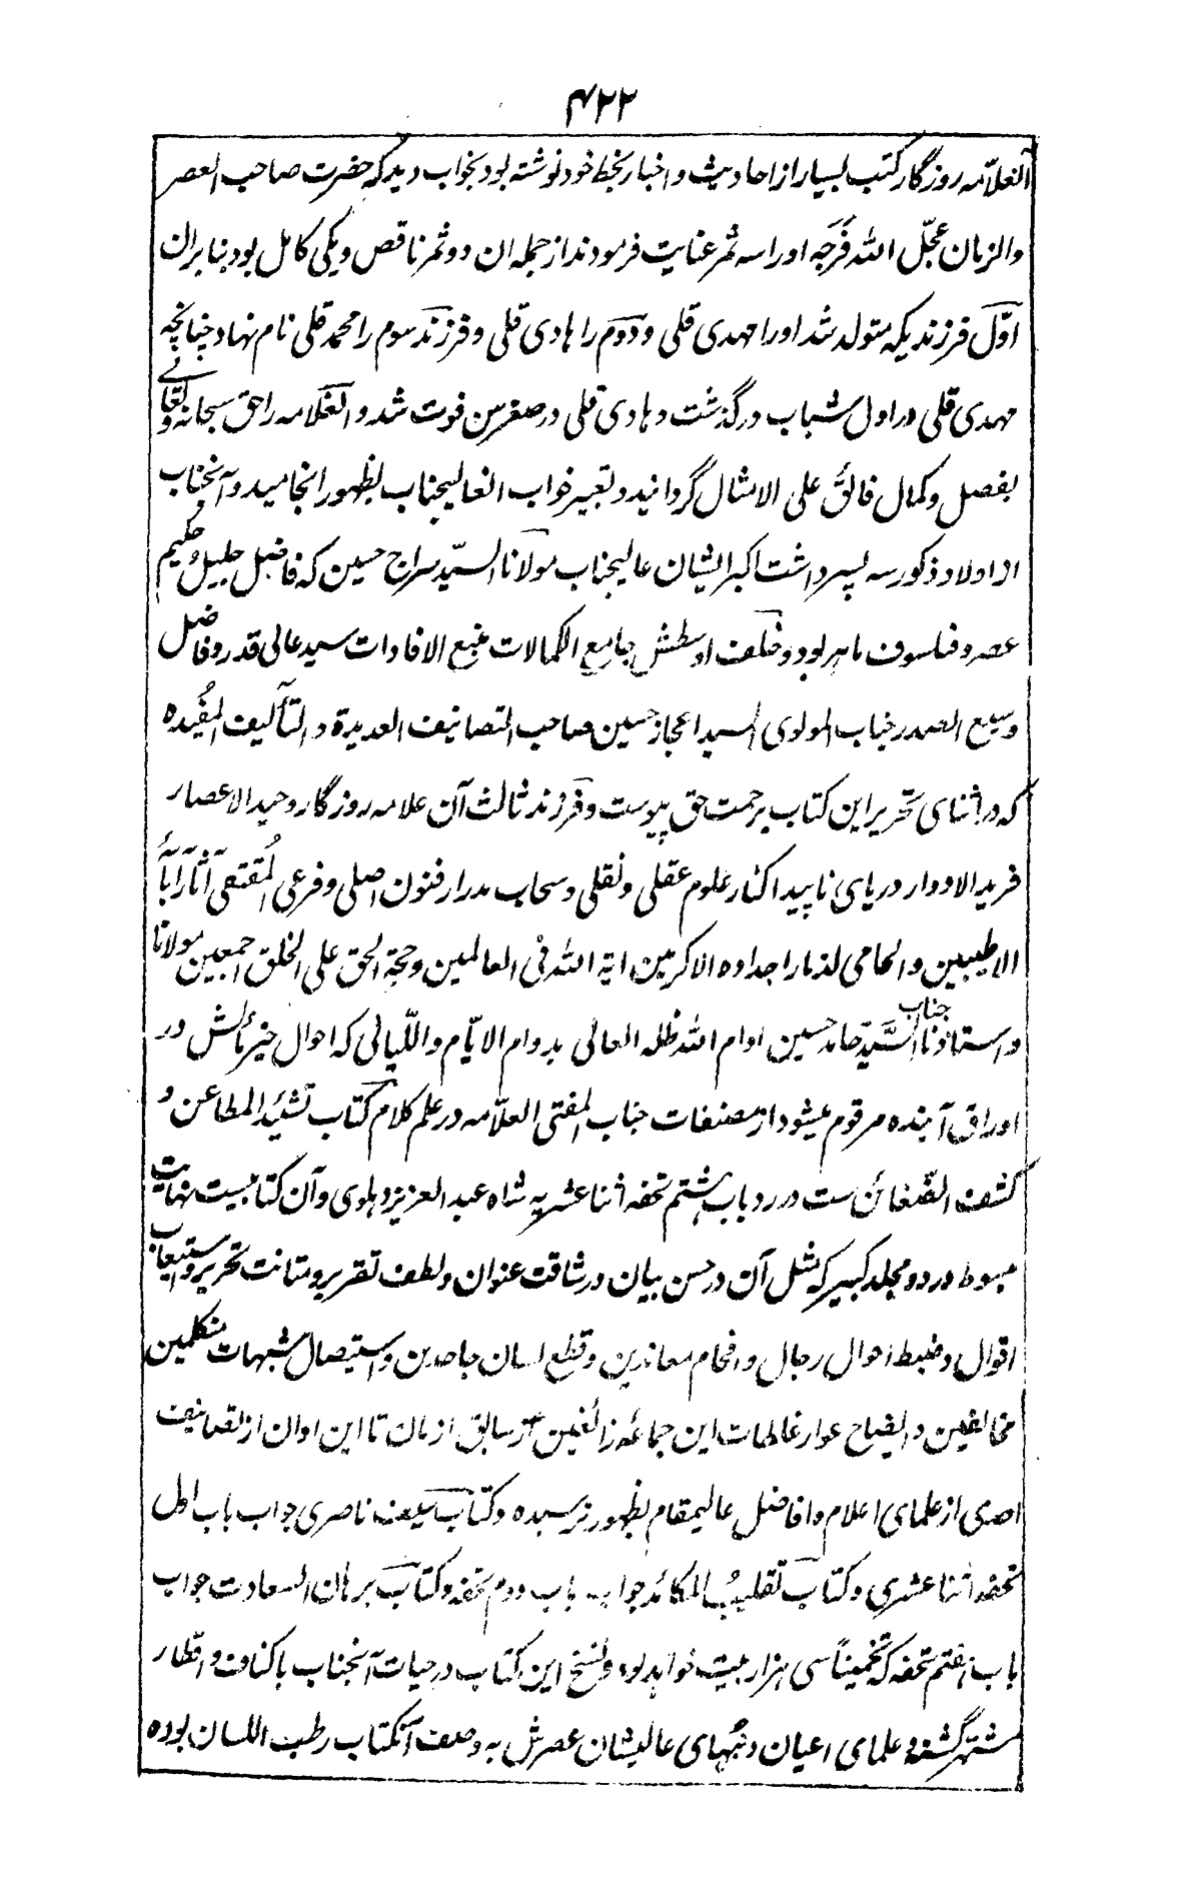 ۴۲۲
آنعلاّمه روزگار کتب بسیار از احادیث و اخبار بخط خود نوشته بود بخواب دید که حضرت صاحب العصر
والزمان عجّل الله فَرَجَه او را سه ثمر عنایت فرمودند از جمله ان دو ثمر ناقص و یکی کامل بود بنابران
اوّل فرزندیکه متولد شد او را مهدی قلی و دوم را هادی قلی و فرزند سوم را محمد قلی نام نهاد چنانچه
مهدی قلی در اول شباب درگذشت و هادی قلی در صغر سن فوت شد و العلامه را حق سبحانه و تعالے
بفضل و کمال فائق علی الامثال گردانید و تعبیر خواب انعالیجناب بظهور انجامید و آنجناب
از اولاد ذکور سه پسر داشت اکبر ایشان عالیجناب مولانا السیّد سراج حسین که فاضل جلیل و حکیم
عصر و فیلسوف ماهر بود و خلف اوسطش جامع الکمالات منبع الافادات سید عالی قدر و فاضل
وسیع الصدر جناب المولوی السید اعجاز حسین صاحب التصانیف العدیدة و التآلیف المفیده
که در اثنای تحریر این کتاب برحمت حق پیوست و فرزند ثالث آن علامه روزگار وحید الاعصار
فرید الادوار دریای ناپیدا کنار علوم عقلی و نقلی و سحاب مدرار فنون اصلی و فرعی المقتفی آثار آبآئه
الاطیبین و الحامی لذمار اجداده الاکرمین ایة الله فی العالمین و حجة الحق علی الخلق اجمعین مولانا
و استاذنا جناب السَّیّد حامد حسین ادام الله ظله العالی بدوام الایّام و اللّیالی که احوال خیر مآلش در
اوراق آینده مرقوم میشود از مصنفات جناب المفتی العلاّمه در علم کلام کتاب تشئید المطاعن و
کشف الضّغائن ست در رد باب هشتم تحفه اثنا عشریه شاه عبد العزیز دهلوی و آن کتابیست نهایت
مبسوط در دو مجلد کبیر که مثل آن در حسن بیان و رشاقت عنوان و لطف تقریر و متانت تحریر و استیعاب
اقوال و ضبط احوال رجال و افحام معاندین و قطع لسان جاحدین و استیصال شبهات متکلمین
مخالفین و ایضاح عوار غلطات این جماعه زائغین از سابق ازمان تا این اوان از تصانیف
احدی از علمای اعلام و افاضل عالیمقام بظهور نرسیده و کتاب سیف ناصری جواب باب اول
تحفه اثنا عشری و کتاب تقلیبُ المکائد جواب باب دوم تحفه و کتاب برهان السعادت جواب
باب هفتم تحفه که تخمیناً سی هزار بیت خواهد بود و نسخ این کتاب در حیات آنجناب باکناف و اقطار
مشتهر گشته و علمای اعیان و نبهای عالیشان عصرش به وصف آنکتاب رطب اللسان بوده